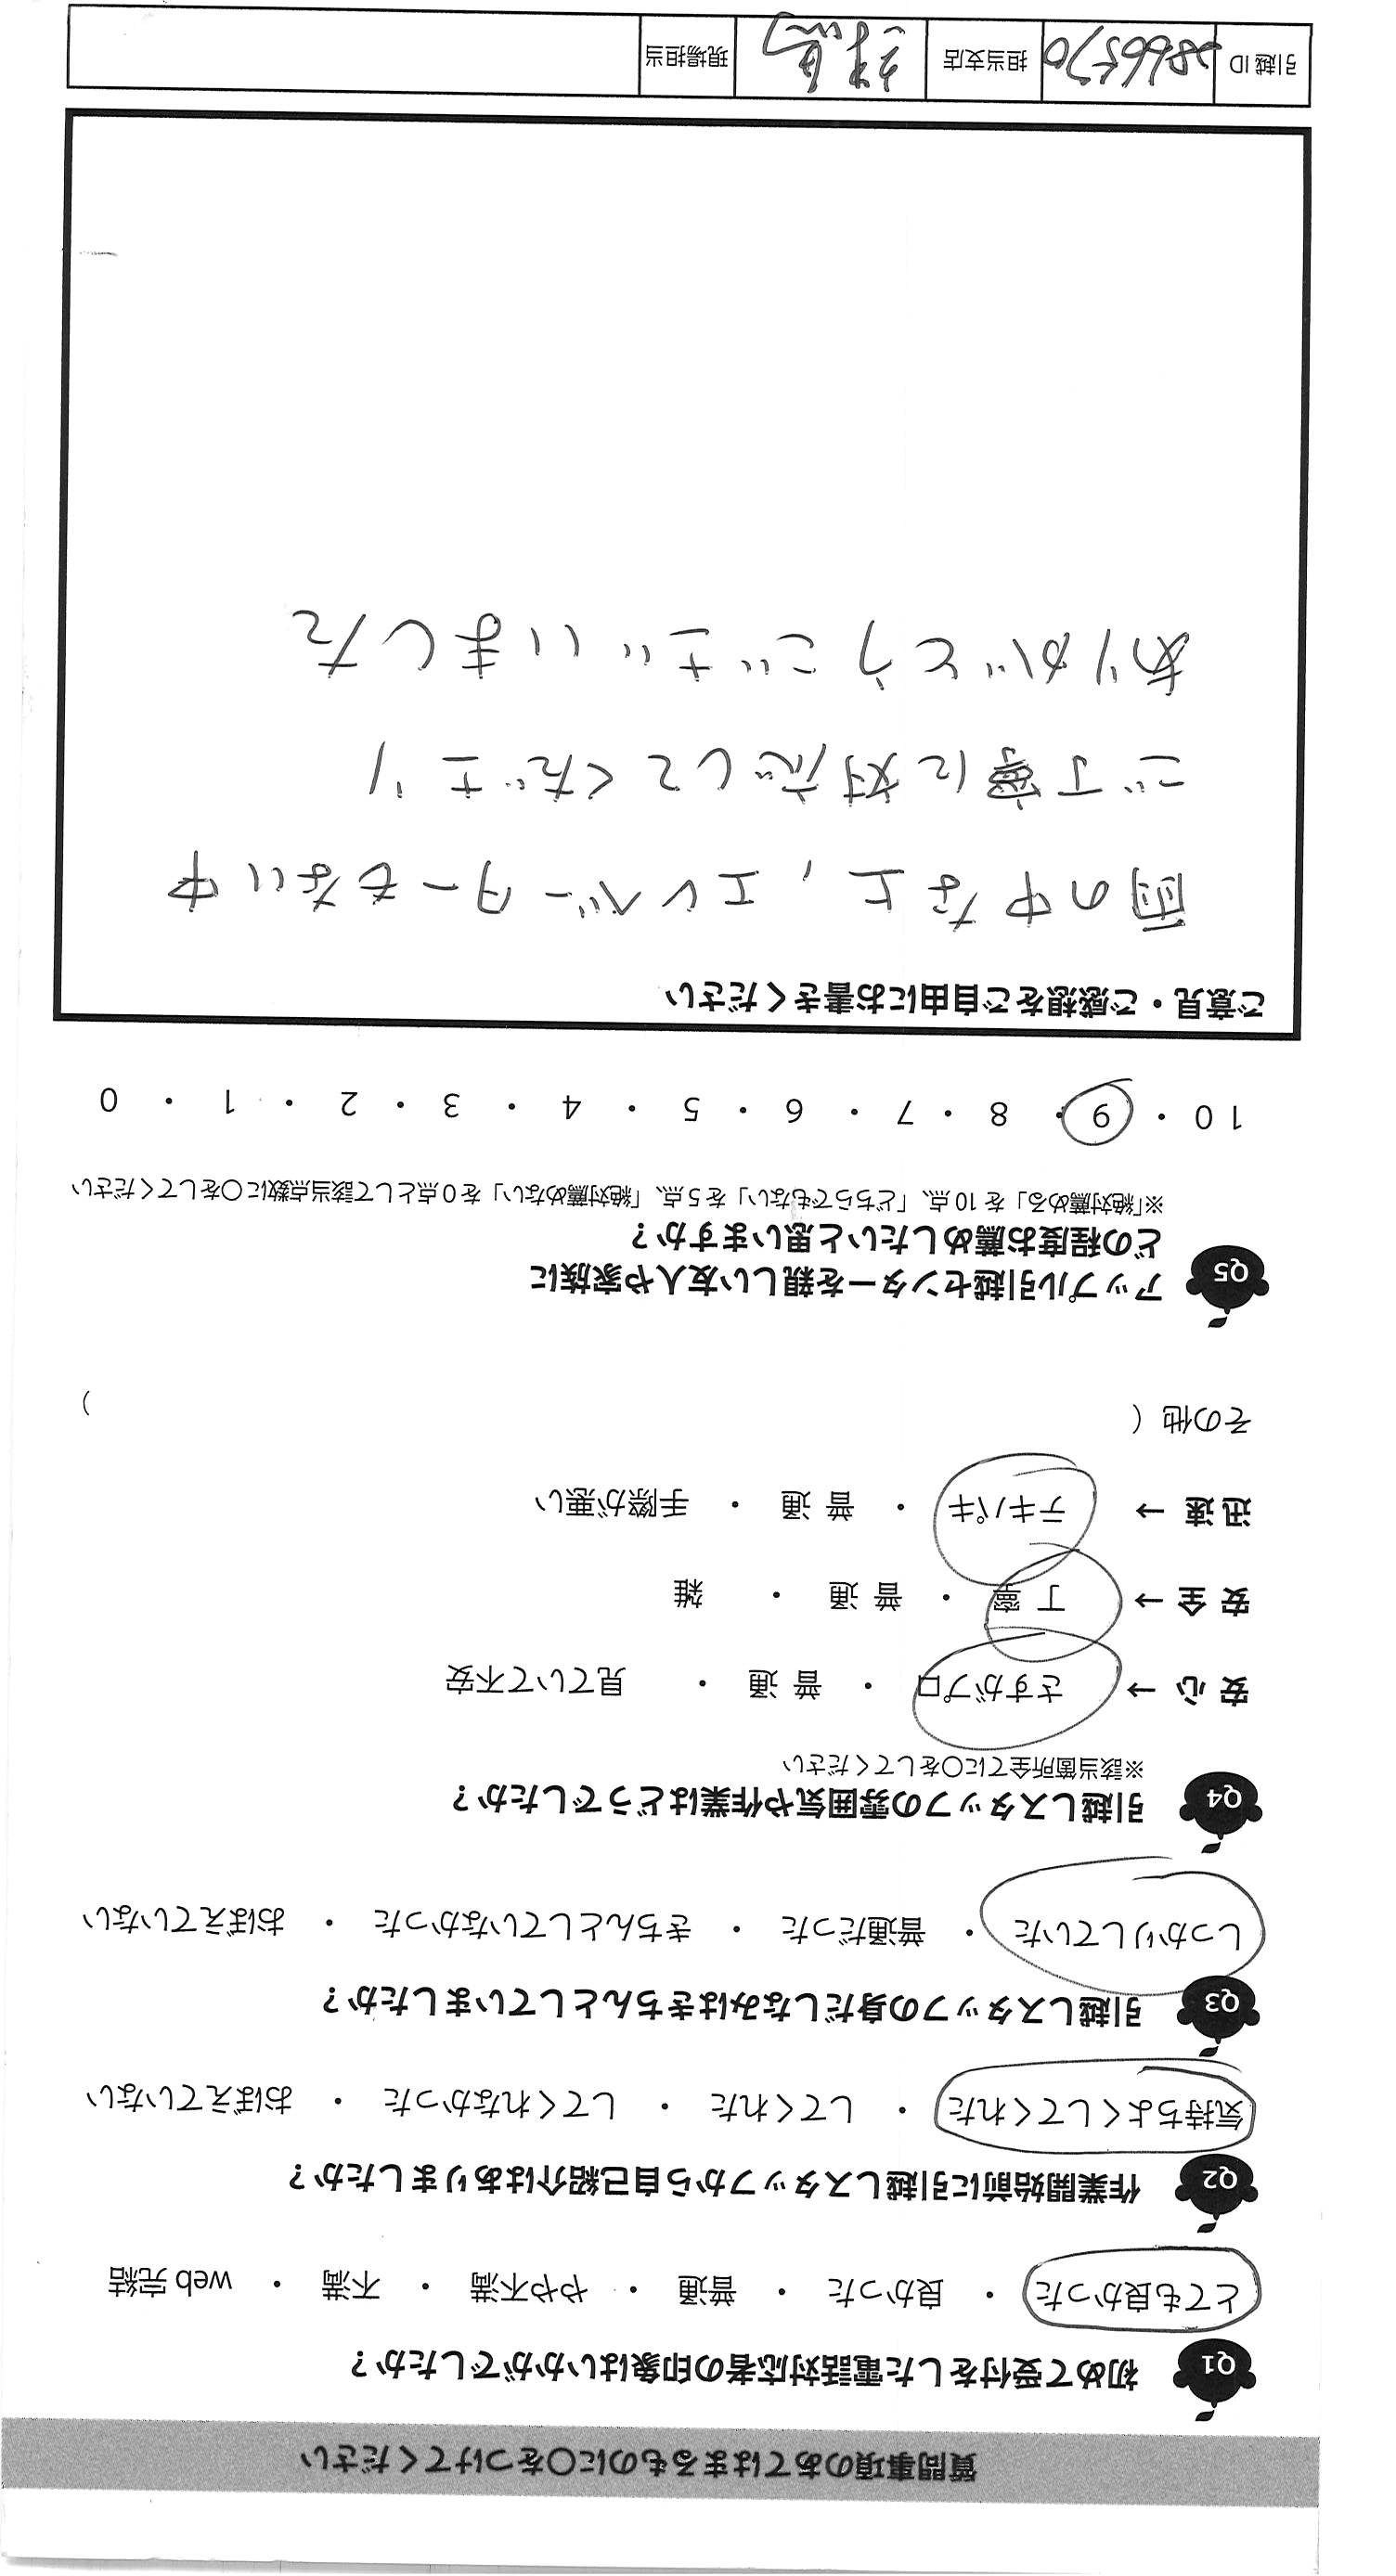 質問事項のあてはまるものに○をつけてください
Q1 初めて受付をした電話対応者の印象はいかがでしたか？
とても良かった ・ 良かった ・ 普通 ・ やや不満 ・ 不満 ・ web 完結
Q2 作業開始前に引越しスタッフから自己紹介はありましたか？
気持ちよくしてくれた ・ してくれた ・ してくれなかった ・ おぼえていない
Q3 引越しスタッフの身だしなみはきちんとしていましたか？
しっかりしていた ・ 普通だった ・ きちんとしていなかった ・ おぼえていない
Q4 引越しスタッフの雰囲気や作業はどうでしたか？
※該当箇所全てに○をしてください
安 心 → さすがプロ ・ 普 通 ・ 見ていて不安
安 全 → 丁 寧 ・ 普 通 ・ 雑
迅 速 → テキパキ ・ 普 通 ・ 手際が悪い
その他（ ）
Q5 アップル引越センターを親しい友人や家族に
どの程度お薦めしたいと思いますか？
※「絶対薦める」を 10 点、「どちらでもない」を 5 点、「絶対薦めない」を 0 点として該当点数に○をしてください
10 ・ 9 ・ 8 ・ 7 ・ 6 ・ 5 ・ 4 ・ 3 ・ 2 ・ 1 ・ 0
ご意見・ご感想をご自由にお書きください
雨の中な上、エレベーターもない中
ご丁寧に対応してくださり
ありがとうございました
引越 ID 2866570 担当支店 現場担当